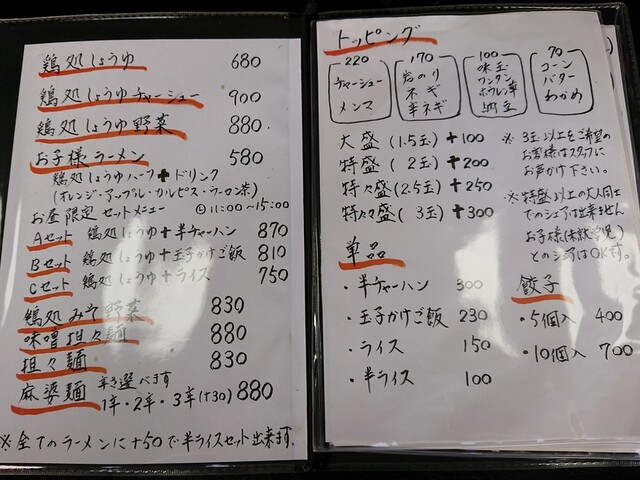 鶏処しょうゆ 680
鶏処しょうゆチャーシュー 900
鶏処しょうゆ野菜 880
お子様ラーメン 580
鶏処しょうゆハーフ+ドリンク
(オレンジ・アップル・カルピス・ウーロン茶)
お昼限定セットメニュー 11:00~15:00
Aセット 鶏処しょうゆ+半チャーハン 870
Bセット 鶏処しょうゆ+玉子かけご飯 810
Cセット 鶏処しょうゆ+ライス 750
鶏処みそ野菜 830
味噌担々麺 880
担々麺 830
麻婆麺 辛さ選べます
1辛・2辛・3辛(+30) 880
※全てのラーメンに+50で半ライスセット出来ます。
トッピング
220
チャーシュー
メンマ
170
岩のり
ネギ
半ネギ
100
味玉
ワンタン
ホウレン草
納豆
70
コーン
バター
わかめ
大盛(1.5玉)+100
特盛(2玉)+200
特々盛(2.5玉)+250
特々々盛(3玉)+300
※3玉以上をご希望の
お客様はスタッフに
お声かけ下さい。
※特盛以上の大人同士
でのシェアは出来ません
お子様(未就学児)
とのシェアはOKです。
単品
・半チャーハン 300
・玉子かけご飯 230
・ライス 150
・半ライス 100
餃子
・5個入 400
・10個入 700